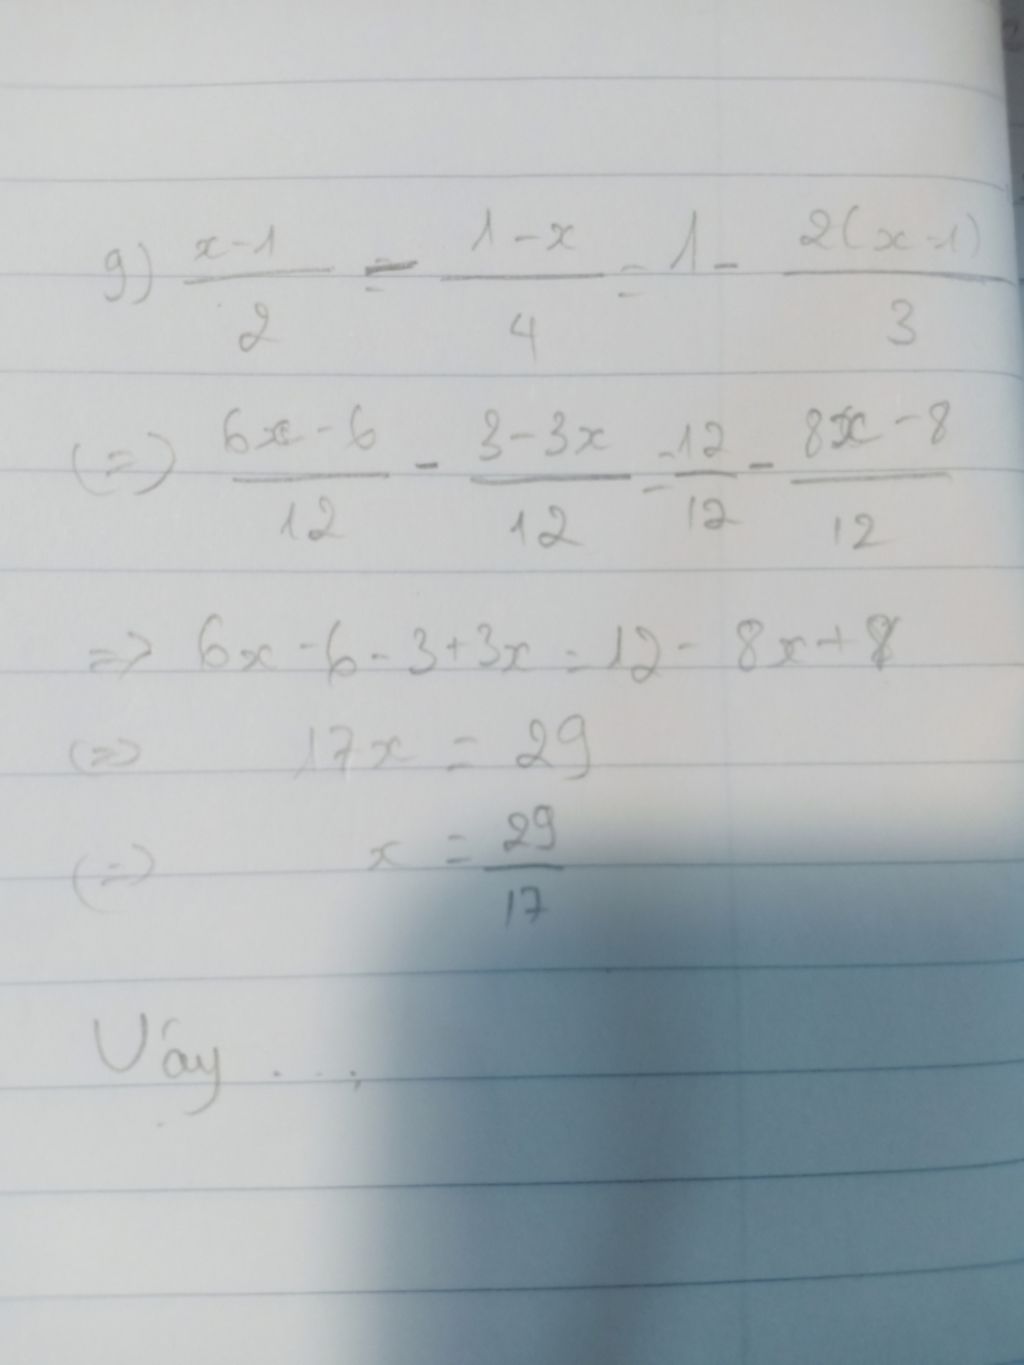 g) x-1/2 = 1-x/4 = 1 - 2(x-1)/3
(=) 6x-6/12 - 3-3x/12 = 12/12 - 8x-8/12
=> 6x-6-3+3x = 12 - 8x+8
(=> 17x = 29
(=) x = 29/17
Vậy ...